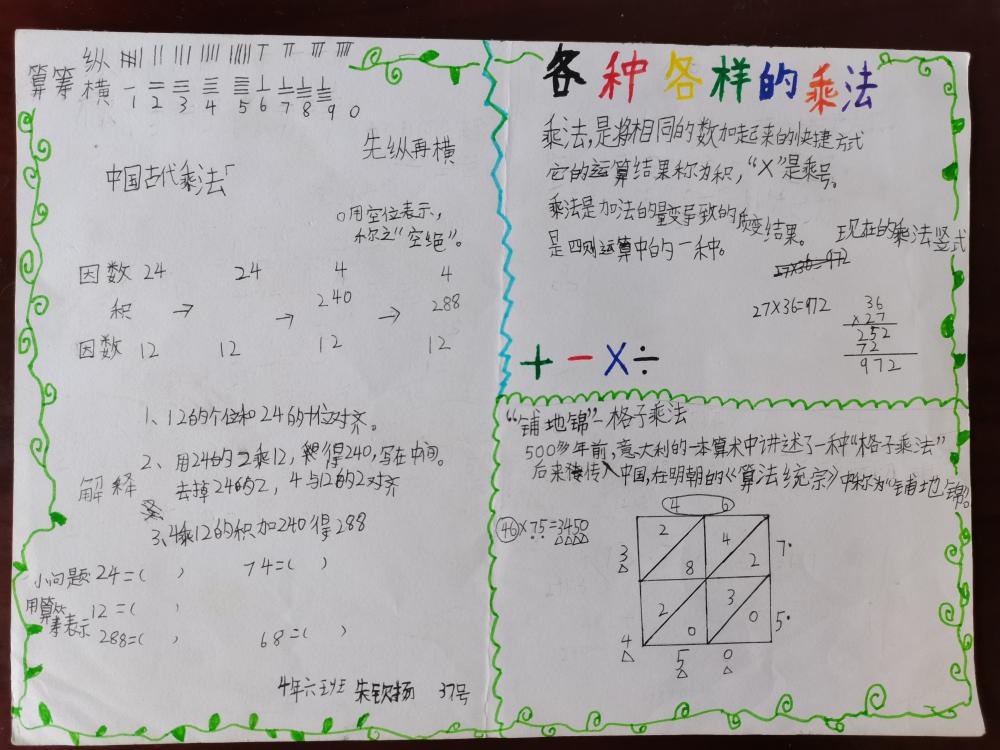 算筹
纵
横
1 2 3 4 5 6 7 8 9 0
先纵再横
中国古代乘法
0用空位表示,
称之“空绝”。
因数 24 24 4 4
积 → → 240 → 288
因数 12 12 12 12
解释
1、12的个位和24的十位对齐。
2、用24的2乘12,得240,写在中间。
去掉24的2,4与12的2对齐
3、4乘12的积加240得288
小问题: 24=( ) 74=( )
用算筹表示 12=( )
288=( ) 68=( )
4年六班 朱钦扬 37号
各种各样的乘法
乘法,是将相同的数加起来的快捷方式
它的运算结果称为积,“X”是乘号。
乘法是加法的量变导致的质变结果。
是四则运算中的一种。
现在的乘法竖式
27×36=972
27×36=972
36
×27
252
72
972
+ - × ÷
“铺地锦”-格子乘法
500多年前,意大利的一本算术中讲述了一种“格子乘法”
后来传入中国,在明朝的《算法统宗》中称为“铺地锦”。
46×75=3450
4 6
2 8 4 2 7
3
2 0 3 0 5
4
5 0